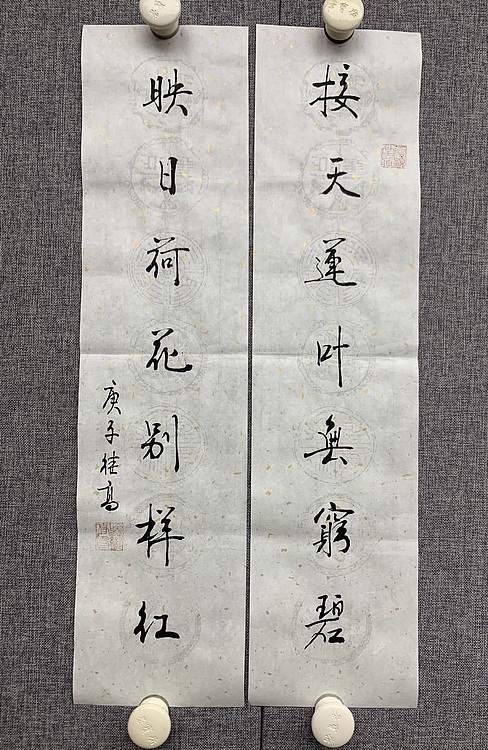 接天蓮叶無窮碧
映日荷花别样红
庚子桂高